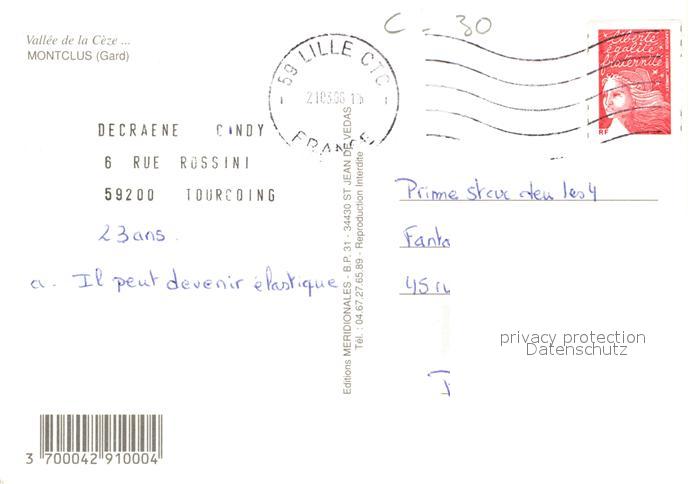 C - 30
Vallée de la Cèze ...
MONTCLUS (Gard)
59 LILLE CTC
FRANCE
liberté
égalité
fraternité
RF
DECRAENE CINDY
6 RUE ROSSINI
59200 TOURCOING
23 ans.
a. Il peut devenir élastique
Editions MERIDIONALES - B.P. 31 - 34430 ST JEAN DE VEDAS
Tél. : 04.67.27.65.89 - Reproduction Interdite
Prime les 4
Fanta
45
privacy protection
Datenschutz
3 700042 910004